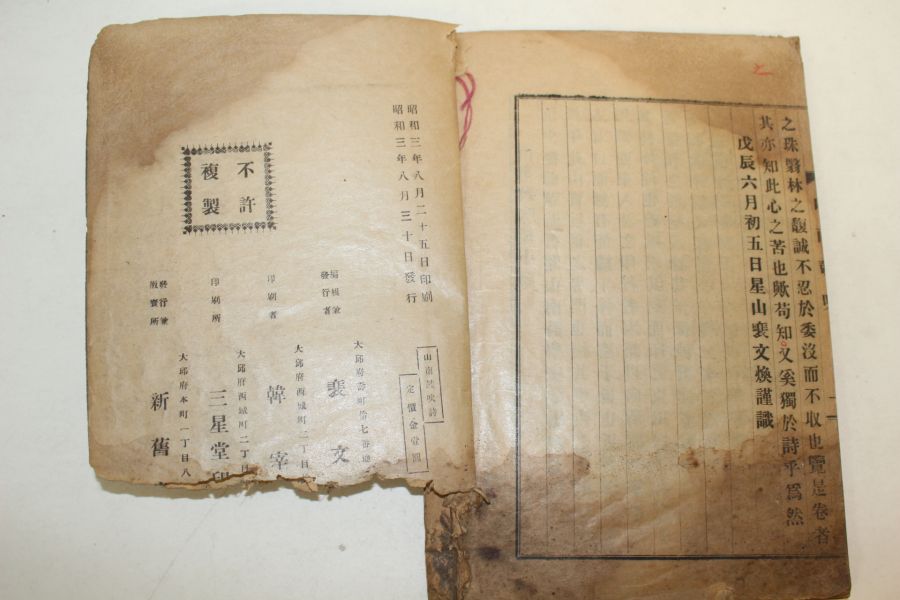 之珠翳林之馥誠不忍於委沒而不取也覽是卷者
其亦知此心之苦也歟苟知之又奚獨於詩乎爲然
戊辰六月初五日星山裵文煥謹識
昭和三年八月二十五日印刷
昭和三年八月三十日發行
不許
複製
山南
定價金壹圓
大邱府
編輯兼
發行者
裵文
大邱府西城町二丁目
印刷者
韓宰
大邱府西城町二丁目
印刷所
三星堂印
大邱府本町一丁目八
發行兼
販賣所
新舊